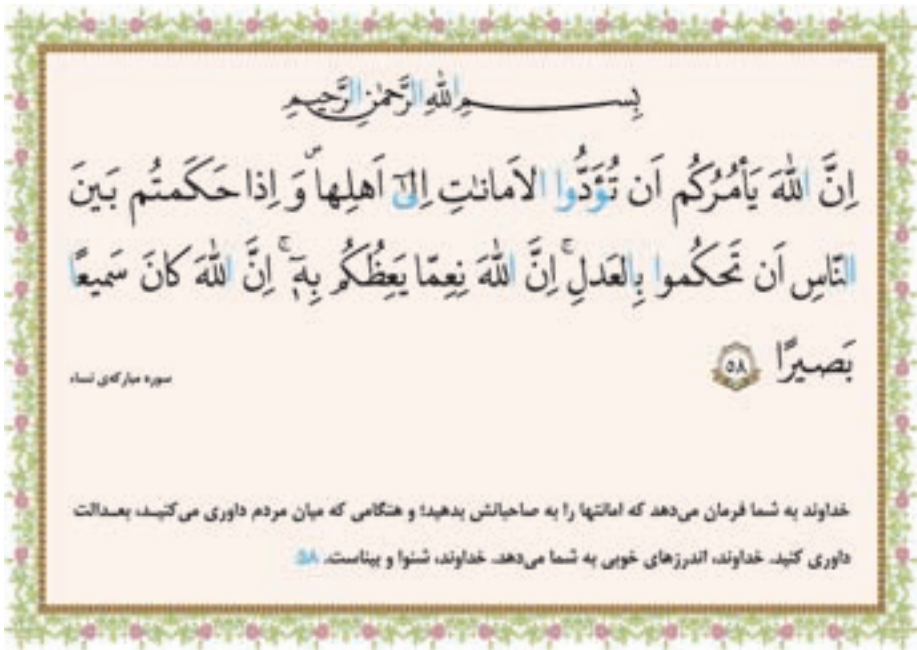 بِسمِ اللهِ الرَّحمٰنِ الرَّحيمِ
اِنَّ اللهَ يَأمُرُكُم اَن تُؤَدُّوا الاَمانٰتِ اِلىٰٓ اَهلِها ۙ وَ اِذا حَكَمتُم بَينَ
النّاسِ اَن تَحكُموا بِالعَدلِ ۚ اِنَّ اللهَ نِعِمّا يَعِظُكُم بِهٖٓ ۚ اِنَّ اللهَ كانَ سَميعًا
بَصيرًا ٥٨
سوره مبارکه‌ی نساء
خداوند به شما فرمان می‌دهد که امانتها را به صاحبانش بدهید؛ و هنگامی که میان مردم داوری می‌کنیـد، بعـدالت
داوری کنید. خداوند، اندرزهای خوبی به شما می‌دهد. خداوند، شنوا و بیناست. ۵۸